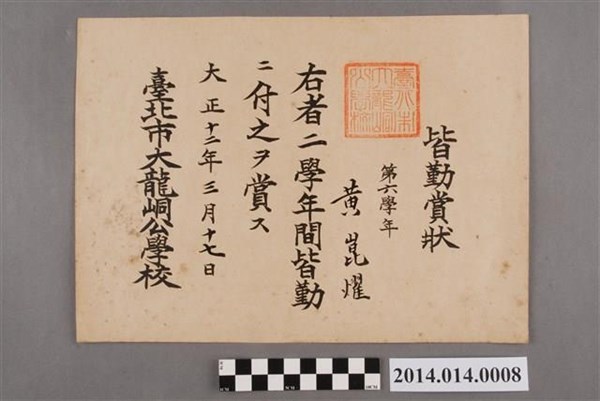 皆勤賞狀
第六學年
黃崑燿
右者二學年間皆勤
ニ付之ヲ賞ス
大正十二年三月十七日
臺北市大龍峒公學校
臺北市
大龍峒
公學校
2014.014.0008